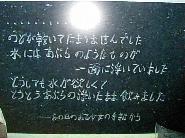 のどが乾いてたまりませんでした
水にはあぶらのようなものが
一面に浮いていました
どうしても水が欲しくて
とうとうあぶらの浮いたまま飲みました
―あの日のある少女の手記から